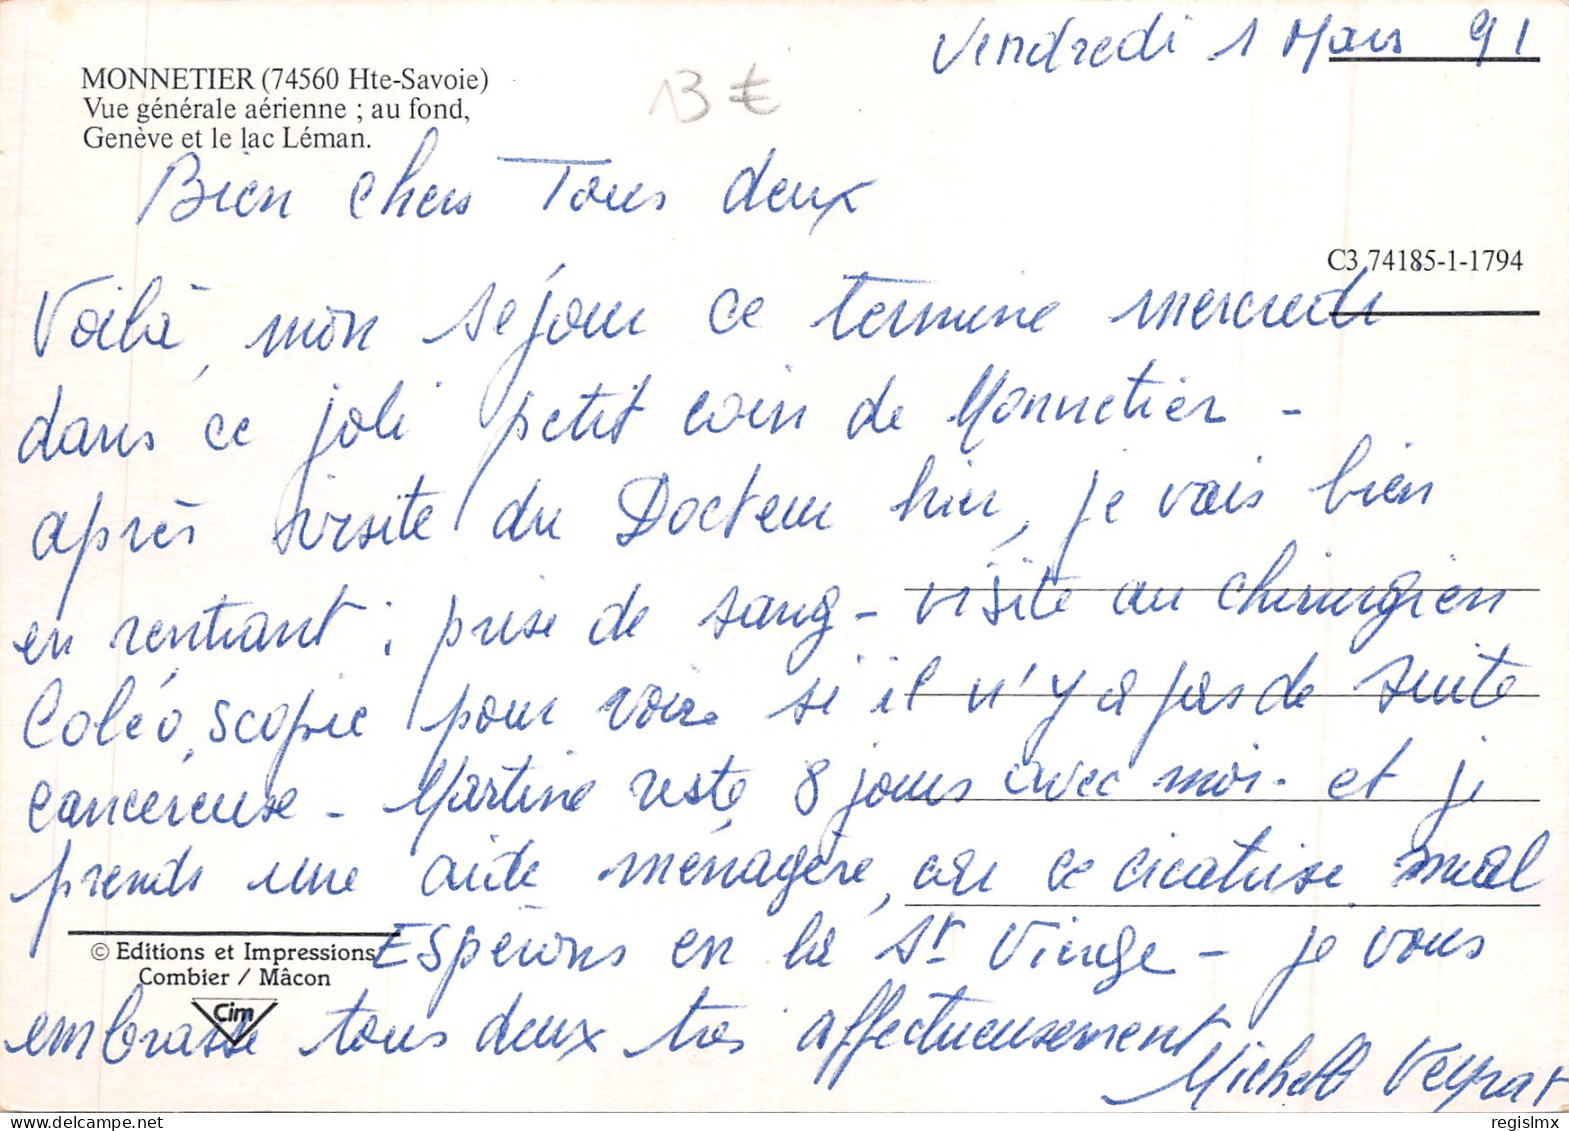 Vendredi 1 Mars 91
MONNETIER (74560 Hte-Savoie)
Vue générale aérienne ; au fond,
Genève et le lac Léman.
13 €
Bien chers Tous deux
C3 74185-1-1794
Voilà, mon séjour ce termine mercredi
dans ce joli petit coin de Monnetier -
après visite du Docteur hier, je vais bien
en rentrant : prise de sang - visite au chirurgien
Coléo, scopie pour voir si il n'y a pas de suite
cancéreuse - Martine reste 8 jours avec moi - et je
prends une aide ménagère, car ce cicatrise mal
Espérons en la St Vierge - je vous
© Editions et Impressions
Combier / Mâcon
Cim
embrasse tous deux très affectueusement
Michell Veyrat
regislmx